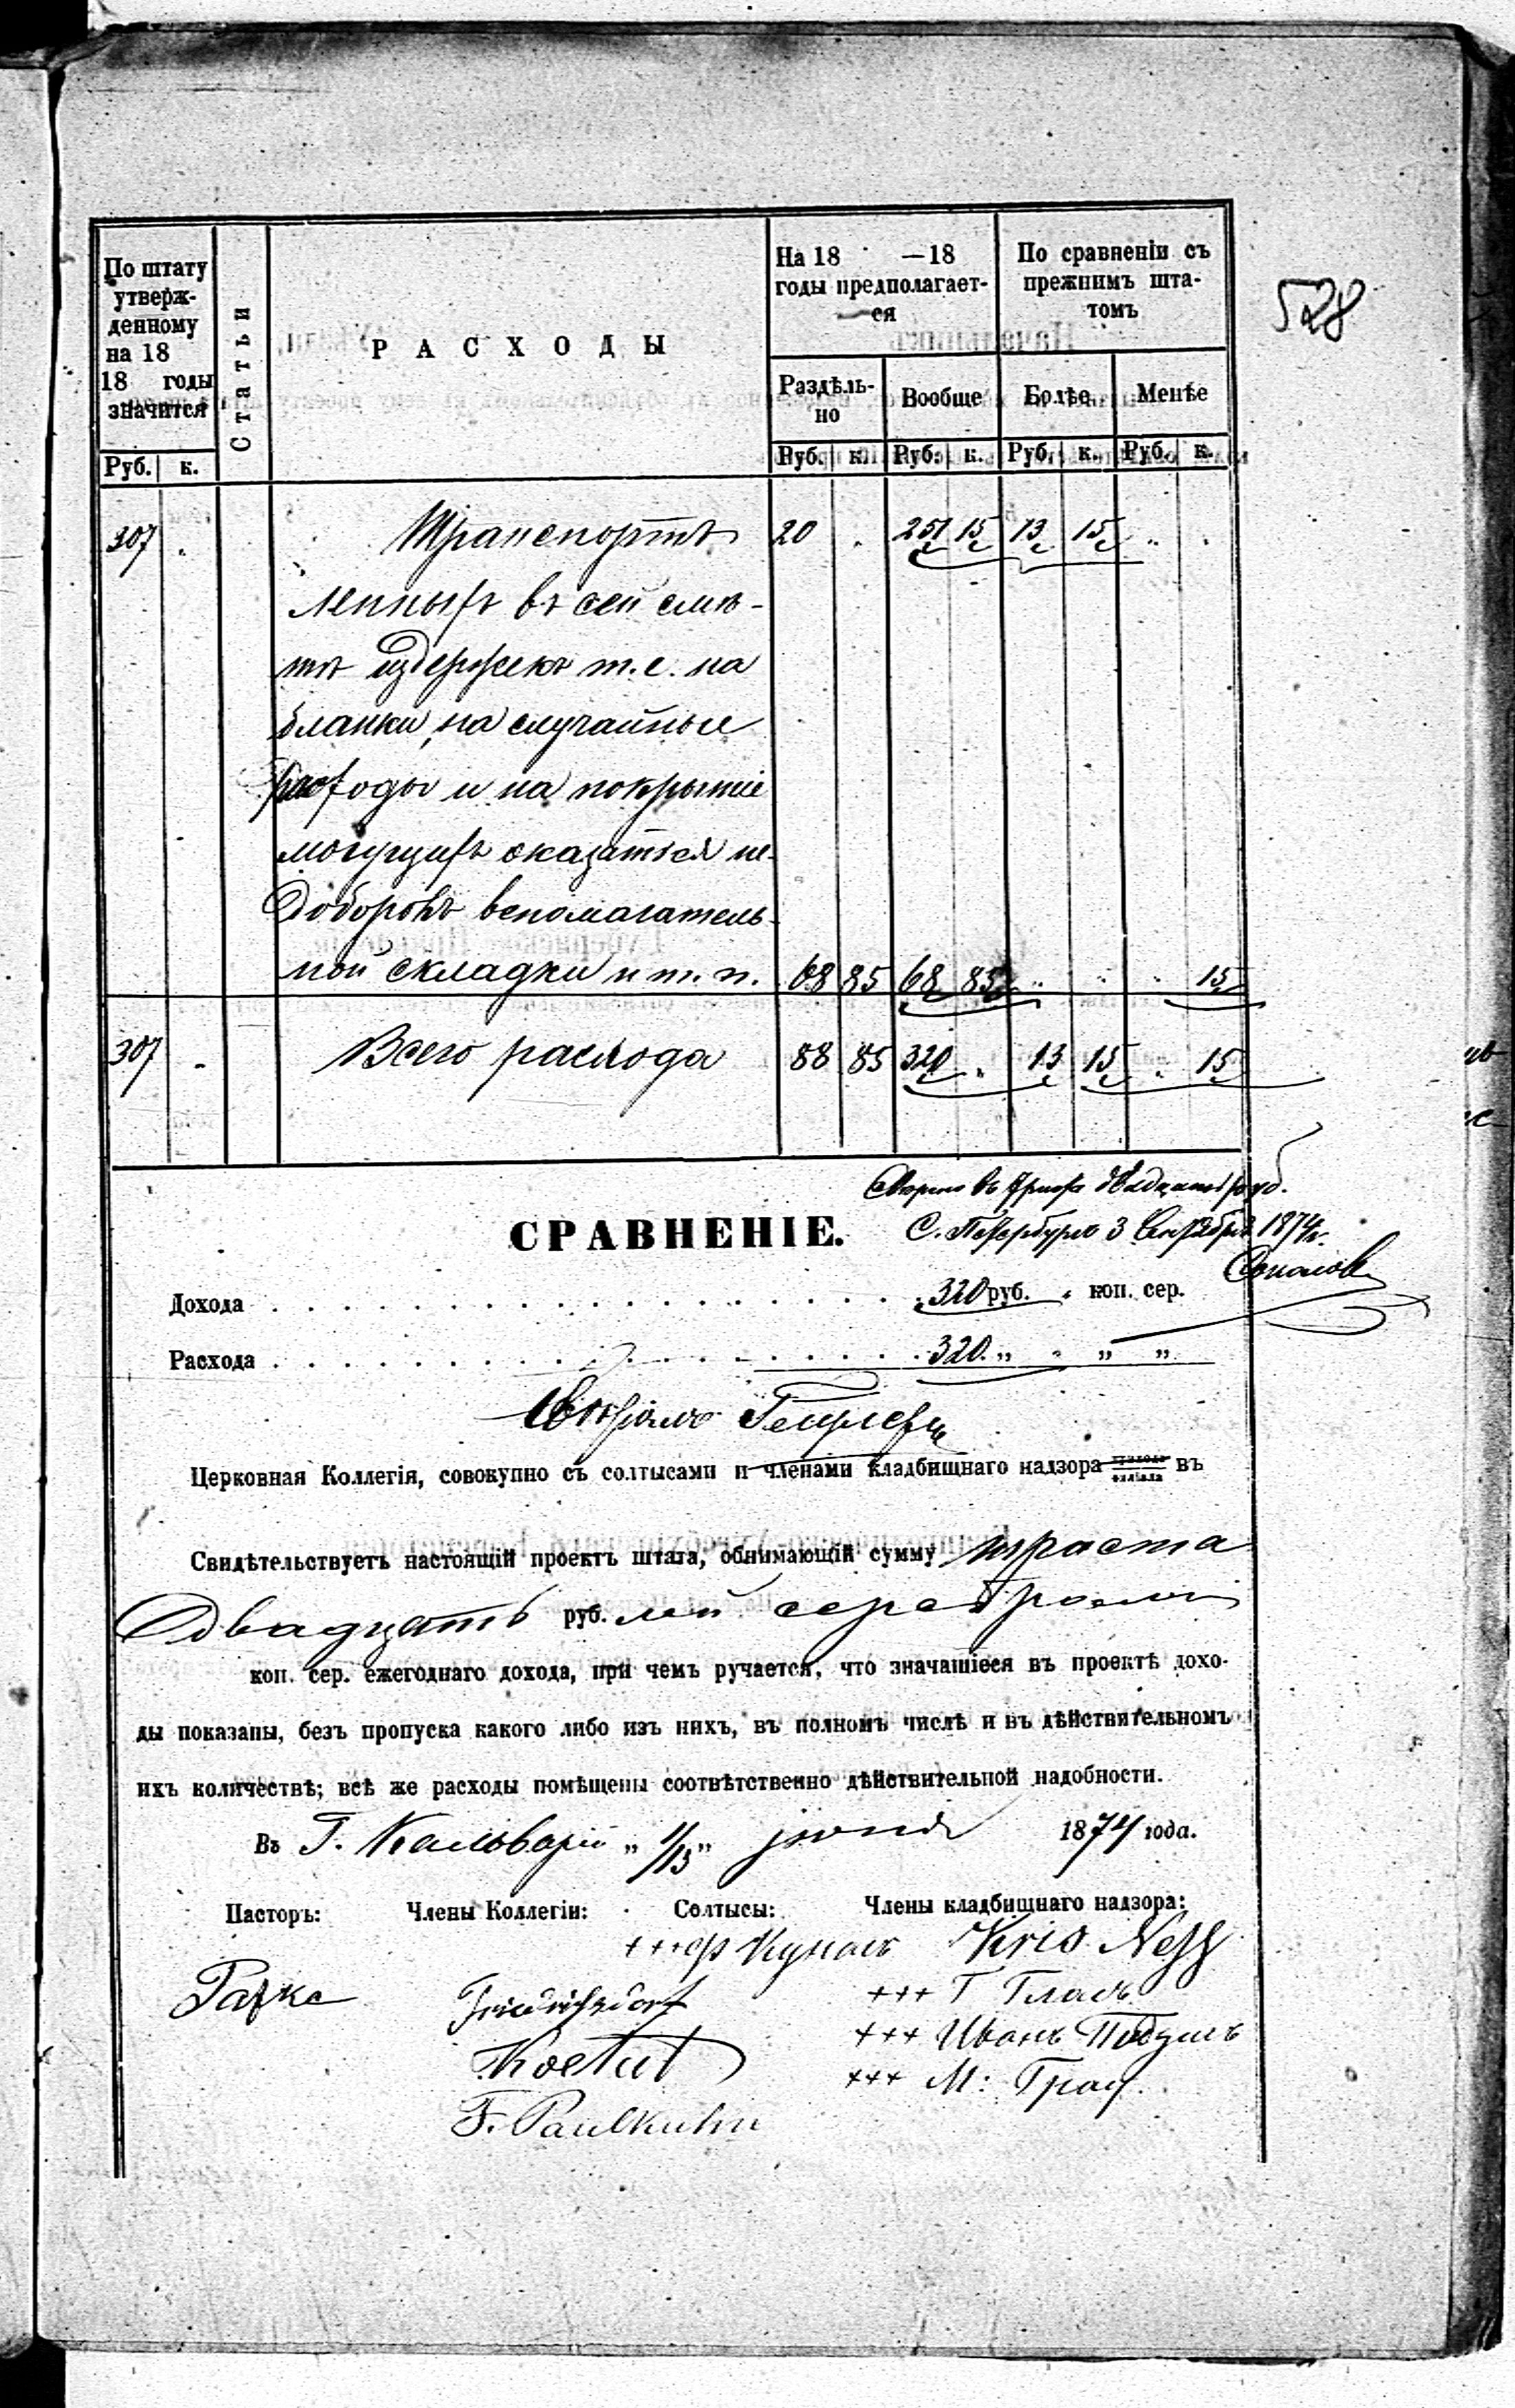 528
По штату утверж-
денному
на 18
18 годы
значится
Статьи
РАСХОДЫ
На 18 —18
годы предполагает-
ся
По сравненіи съ
прежнимъ шта-
томъ
Раздѣль-
но
Вообще
Болѣе
Менѣе
Руб. к. Руб. к. Руб. к. Руб. к. Руб. к.
307 „ Транспортъ 20 „ 251 15 13 15 „ „
ленныхъ въ сей смѣ-
тѣ издержекъ т.е. на
бланки, на случайные
расходы и на покрытіе
могущихъ оказаться не-
доборовъ вспомагатель-
ной складки и т. п. 68 85 68 85 „ „ „ 15
307 „ Всего расхода 88 85 320 „ 13 15 „ 15
руб.
С. Петербургъ 3 Сентября 1874 г.
СРАВНЕНІЕ.
Дохода 320 руб. „ коп. сер.
Расхода 320 „ „ „ „
Церковная Коллегія, совокупно съ солтысами и членами кладбищнаго надзора прихода филіала въ
Свидѣтельствуетъ настоящій проектъ штата, обнимающій сумму триста
двадцать руб. лей серебромъ
коп. сер. ежегоднаго дохода, при чемъ ручается, что значащіеся въ проектѣ дохо-
ды показаны, безъ пропуска какого либо изъ нихъ, въ полномъ числѣ и въ дѣйствительномъ
ихъ количествѣ; всѣ же расходы помѣщены соотвѣтственно дѣйствительной надобности.
Въ Г. Кальваріи „ 1/13 „ іюня 1874 года.
Пасторъ: Члены Коллегіи: Солтысы: Члены кладбищнаго надзора:
+++ Ф Кунатъ Kris Ness
Friedrichsdorf +++ Г
+++ Иванъ
+++ М: Граф.
F. Paulkuhn